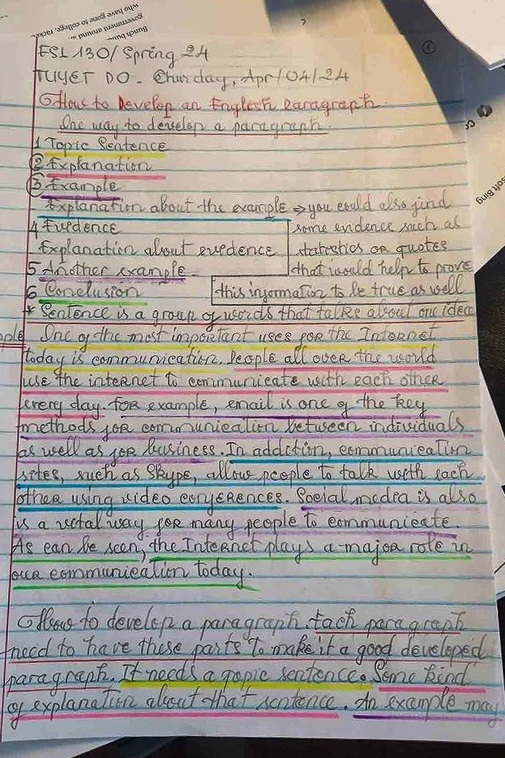 who have gone to college, rac
government around
Bunch bun
?
1
ESL 130/ Spring 24
TUYET DO - Thurday, Apr/04/24
How to Develop an English Paragraph.
One way to develop a paragraph.
1 Topic Sentence
2 Explanation
3 Example
Explanation about the example → you could also find
4 Evidence some evidence such as
Explanation about evidence statistics or quotes
5 Another example that would help to prove
6 Conclusion this information to be true as well
* Sentence is a group of words that talks about one idea
ple One of the most important uses for the Internet
today is communication. People all over the world
use the internet to communicate with each other
every day. For example, email is one of the key
methods for communication between individuals
as well as for business. In addiction, communication
sites, such as Skype, allow people to talk with each
other using video conferences. Social media is also
is a vital way for many people to communicate.
As can be seen, the Internet plays a major role in
our communication today.
How to develop a paragraph. Each paragraph
need to have these parts to make it a good developed
paragraph. It needs a topic sentence. Some kind
of explanation about that sentence. An example may
soft Bing